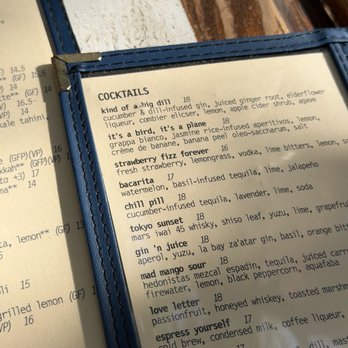 COCKTAILS
kind of a big dill 18
cucumber & dill-infused gin, juiced ginger root, elderflower
liqueur, combier elicser, lemon, apple cider shrub, agave
it's a bird, it's a plane 18
grappa bianco, jasmine rice-infused aperitivos, lemon,
crème de banane, banana peel oleo-saccharum, salt
strawberry fizz forever 16
fresh strawberry, lemongrass, vodka, lime bitters, lemon, so
bacarita 17
watermelon, basil-infused tequila, lime, jalapeño
chill pill 18
cucumber-infused tequila, lavender, lime, soda
tokyo sunset 18
mars iwai 45 whisky, shiso leaf, yuzu, lime, grapefru
gin 'n juice 18
aperol, yuzu, la bay za'atar gin, basil, orange bitt
mad mango sour 18
hedonistas mezcal espadin, tequila, juiced carr
firewater, lemon, black peppercorn, aquafaba
love letter 18
passionfruit, honeyed whiskey, toasted marshm
espress yourself 17
cold brew, condensed milk, coffee liqueur,
17
dill, mast
(GF) 14.5
** (GF) 14
16
tte** 14
P) 16.5
kale tahini,
(GFP)(VP) 16
(VP) 16
to +3) 17
na** 14
li 16
lemon** (GF)
(VP) 16
16
grilled lemon (GF)
(VP) 16